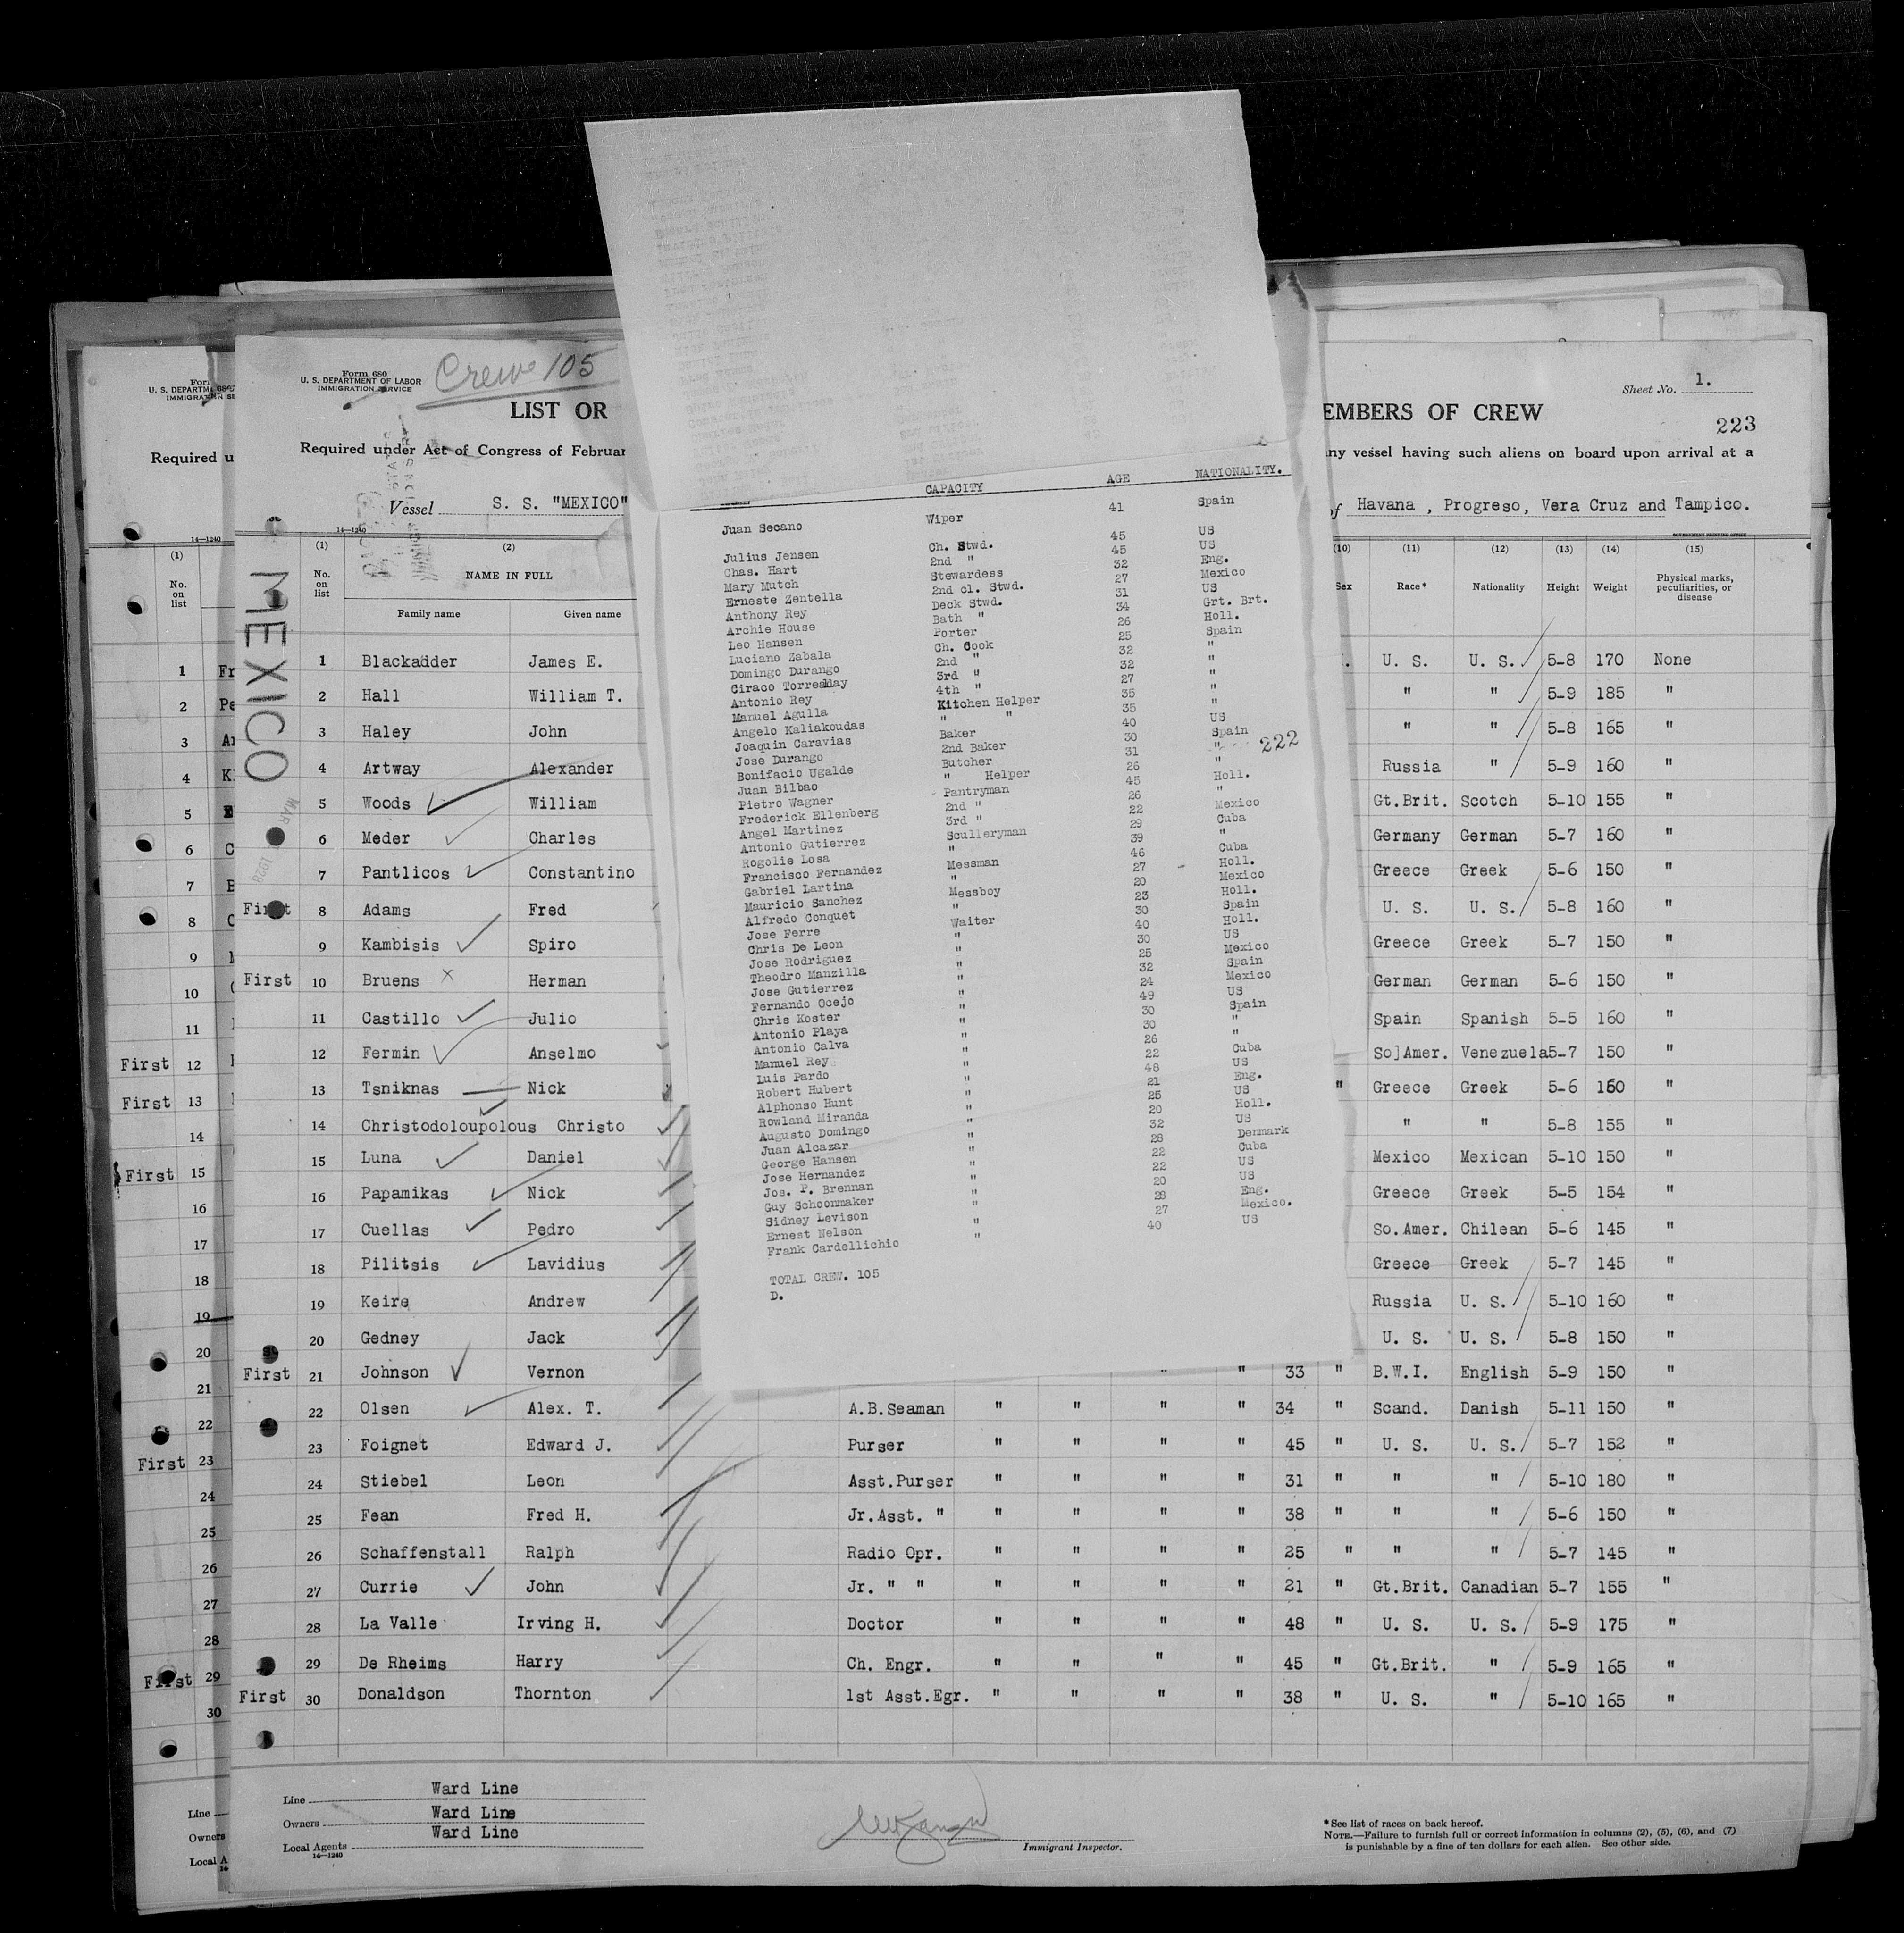 Form 680
U. S. DEPARTMENT OF LABOR
IMMIGRATION SERVICE
Crew 105
LIST OR
EMBERS OF CREW
Sheet No. 1.
223
Required under Act of Congress of Februar
any vessel having such aliens on board upon arrival at a
Vessel S. S. "MEXICO"
of Havana , Progreso, Vera Cruz and Tampico.
14—1240
MEXICO
CAPACITY AGE NATIONALITY.
Juan Secano Wiper 41 Spain
Julius Jensen Ch. Stwd. 45 US
Chas. Hart 2nd " 45 US
Mary Mutch Stewardess 32 Eng.
Erneste Zentella 2nd cl. Stwd. 27 Mexico
Anthony Rey Deck Stwd. 31 US
Archie House Bath " 34 Grt. Brt.
Leo Hansen Porter 26 Holl.
Luciano Zabala Ch. Cook 25 Spain
Domingo Durango 2nd " 32 "
Ciraco Torresday 3rd " 32 "
Antonio Rey 4th " 27 "
Manuel Agulla Kitchen Helper 35 "
Angelo Kaliakoudas " " 35 "
Joaquin Caravias Baker 40 US
Jose Durango 2nd Baker 30 Spain
Bonifacio Ugalde Butcher 31 "
222
Juan Bilbao " Helper 26 "
Pietro Wagner Pantryman 45 Holl.
Frederick Ellenberg 2nd " 26 "
Angel Martinez 3rd " 22 Mexico
Antonio Gutierrez Sculleryman 29 Cuba
Rogolie Losa " 39 "
Francisco Fernandez Messman 46 Cuba
Gabriel Lartina " 27 Holl.
Mauricio Sanchez Messboy 20 Mexico
Alfredo Conquet " 23 Holl.
Jose Ferre Waiter 30 Spain
Chris De Leon " 40 Holl.
Jose Rodriguez " 30 US
Theodro Manzilla " 25 Mexico
Jose Gutierrez " 32 Spain
Fernando Ocejo " 24 Mexico
Chris Koster " 49 US
Antonio Playa " 30 Spain
Antonio Calva " 30 "
Manuel Rey " 26 "
Luis Pardo " 22 Cuba
Robert Hubert " 48 US
Alphonso Hunt " 21 Eng.
Rowland Miranda " 25 US
Augusto Domingo " 20 Holl.
Juan Alcazar " 32 US
George Hansen " 28 Denmark
Jose Hernandez " 22 Cuba
Jos. P. Brennan " 22 US
Guy Schoonmaker " 20 US
Sidney Levison " 28 Eng.
Ernest Nelson " 27 Mexico.
Frank Cardellichio " 40 US
TOTAL CREW. 105
D.
(1) (2) (10) (11) (12) (13) (14) (15)
No. on list NAME IN FULL Sex Race* Nationality Height Weight Physical marks, peculiarities, or disease
Family name Given name
1 Blackadder James E. U. S. U. S. 5-8 170 None
2 Hall William T. " " 5-9 185 "
3 Haley John " " 5-8 165 "
4 Artway Alexander Russia " 5-9 160 "
5 Woods William Gt.Brit. Scotch 5-10 155 "
6 Meder Charles Germany German 5-7 160 "
7 Pantlicos Constantino Greece Greek 5-6 150 "
First 8 Adams Fred U. S. U. S. 5-8 160 "
9 Kambisis Spiro Greece Greek 5-7 150 "
First 10 Bruens Herman German German 5-6 150 "
11 Castillo Julio Spain Spanish 5-5 160 "
12 Fermin Anselmo So]Amer. Venezuela 5-7 150 "
13 Tsniknas Nick " Greece Greek 5-6 160 "
14 Christodoloupolous Christo " " 5-8 155 "
15 Luna Daniel Mexico Mexican 5-10 150 "
16 Papamikas Nick Greece Greek 5-5 154 "
17 Cuellas Pedro So.Amer. Chilean 5-6 145 "
18 Pilitsis Lavidius Greece Greek 5-7 145 "
19 Keire Andrew Russia U. S. 5-10 160 "
20 Gedney Jack U. S. U. S. 5-8 150 "
First 21 Johnson Vernon " " 33 " B.W.I. English 5-9 150 "
22 Olsen Alex. T. A.B.Seaman " " " " 34 " Scand. Danish 5-11 150 "
23 Foignet Edward J. Purser " " " " 45 " U. S. U. S. 5-7 152 "
24 Stiebel Leon Asst.Purser " " " " 31 " " " 5-10 180 "
25 Fean Fred H. Jr.Asst. " " " " " 38 " " " 5-6 150 "
26 Schaffenstall Ralph Radio Opr. " " " " 25 " " " 5-7 145 "
27 Currie John Jr. " " " " " " 21 " Gt.Brit. Canadian 5-7 155 "
28 La Valle Irving H. Doctor " " " " 48 " U. S. U. S. 5-9 175 "
29 De Rheims Harry Ch. Engr. " " " " 45 " Gt.Brit. " 5-9 165 "
First 30 Donaldson Thornton 1st Asst.Egr. " " " " 38 " U. S. " 5-10 165 "
Line Ward Line
Owners Ward Line
Local Agents Ward Line
14—1240
Immigrant Inspector.
*See list of races on back hereof.
NOTE.—Failure to furnish full or correct information in columns (2), (5), (6), and (7)
is punishable by a fine of ten dollars for each alien. See other side.
Required u
14—1240
(1)
No.
on
list
1 Fr
2 Pe
3
4
5
6
7
8
9
10
11
First 12
First 13
14
First 15
16
17
18
19
20
21
22
First 23
24
25
26
27
28
First 29
30
Line
Owners
Local A